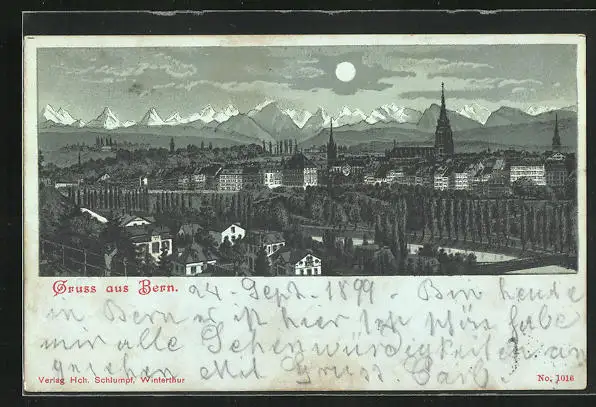 Gruss aus Bern. 24. Sept. 1899. Bin heute
in Bern u. es ist hier sehr schön habe
mir alle Sehenswürdigkeiten an
gesehen Mit Gruss. Carl.
Verlag Hch. Schlumpf, Winterthur
No. 1016